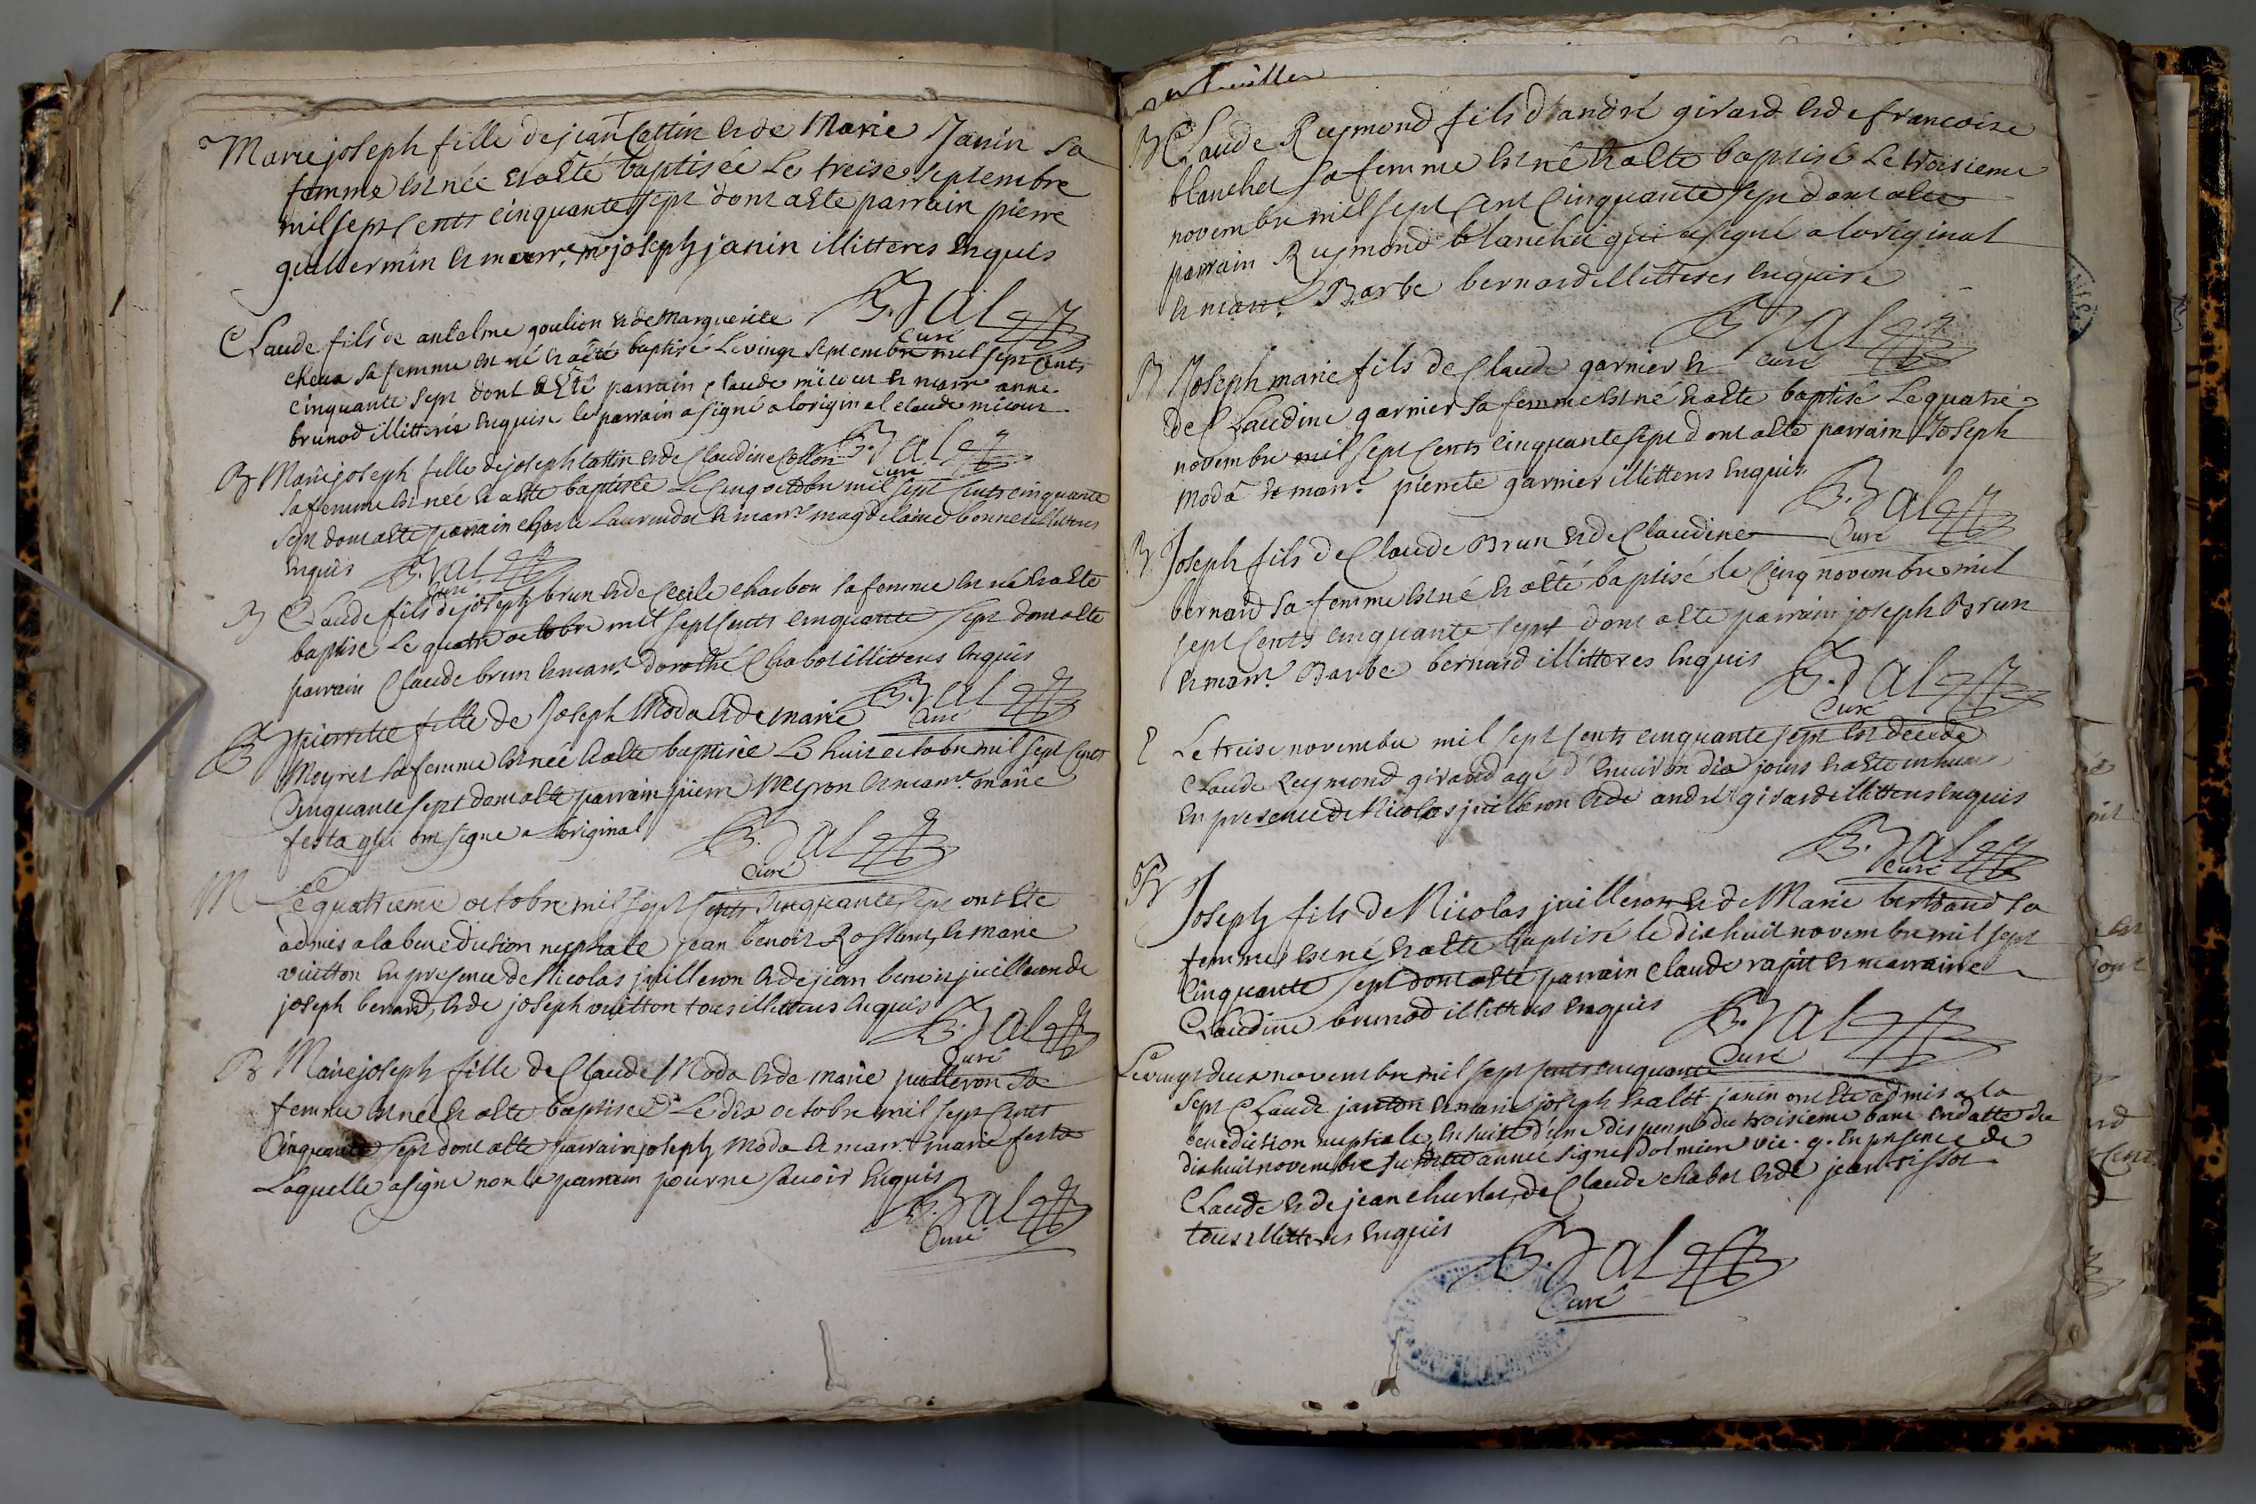 Marie joseph fille de jean Cattin et de Marie Janin sa
femme est née et a été baptisée Le treise septembre
mil sept Cents cinquante sept dont a été parrain pierre
guillermin et marr.e m.e joseph janin illitteres enquis
B. Jal
Curé
Claude fils de antelme goulion et de Marguerite
sa femme est né et a été baptisé Le vingt septembre mil sept Cents
cinquante sept dont a été parrain Claude micour et marr.e anne
brunod illitterés enquise le parrain a signé a loriginal claude micour
B. Jal
Curé
B Marie joseph fille de joseph Cattin et de Claudine Collon
sa femme est née et a été baptisée Le Cinq octobre mil sept Cents cinquante
sept dont a été parrain et marr.e magdelaine bonne illitteres
enquis
B. Jal
Curé
B Claude fils de joseph brun et de Cecile Charbon sa femme est né et a été
baptisé Le quatre octobre mil sept Cents Cinquante sept dont a été
parrain Claude brun et marr.e dorothé Chabot illitteres enquis
B. Jal
Curé
B pierrette fille de Joseph Moda et de marie
Meyret sa femme est née et a été baptisée Le huit octobre mil sept Cents
Cinquante sept dont a été parrain pierre Meyron et marr.e marie
festa qui ont signe a loriginal
B. Jal
Curé
M Le quattrieme octobre mil sept Cents Cinquante sept ont été
admis a la benediction nuptiale jean benoit Rossant et marie
vuitton en presence de Nicolas juilleron et de jean benoit juilleron de
joseph benard, et de joseph vuitton tous illitteres enquis
B. Jal
Curé
B Marie joseph fille de Claude Moda et de marie juilleron sa
femme est née et a été baptisée Le dix octobre mil sept Cents
Cinquante sept dont a été parrain joseph Moda et marr.e marie festa
Laquelle a signé non le parrain pour ne savoir enquis
B. Jal
Curé
B Claude Reymond fils d'andré girard et de francoise
blanchet sa femme est né et a été baptisé Le troisieme
novembre mil sept Cent Cinquante sept dont a été
parrain Reymond blanchet qui a signé a loriginal
et marr.e Barbe bernard illitteres enquise
B. Jal
Curé
B Joseph marie fils de Claude garnier et
de Claudine garnier sa femme est né et a été baptisé Le quatre
novembre mil sept Cents Cinquante sept dont a été parrain Joseph
Moda et marr.e pierrete garnier illitteres enquis
B. Jal
Curé
B. Joseph fils de Claude Brun et de Claudine
bernard sa femme est né et a été baptisé le Cinq novembre mil
sept Cents Cinquante sept dont a été parrain joseph Brun
et marr.e Barbe bernard illitteres enquis
B. Jal
Curé
Le treise novembre mil sept Cents cinquante sept est decede
Claude Reymond girard agé d'environ dix jours et a été inhumé
En presence de Nicolas juilleron et de andré girard illitteres enquis
B. Jal
Curé
B Joseph fils de Nicolas juilleron et de Marie bertrand sa
femme est né et a été baptisé le dix huit novembre mil sept
Cinquante sept dont a été parrain Claude et marraine
Claudine brunod illitteres enquis
B. Jal
Curé
Le vingt deux novembre mil sept Cents cinquante
sept Claude janton et marie joseph janin ont été admis a la
benediction nuptiale, ensuite d'une dispense du troisieme banc en datte du
dix huit novembre susditte année signé Dolmiere vic. g. En presence de
Claude et de jean churlet, de Claude chabot et de jean tissot
tous illitteres enquis
B. Jal
Curé